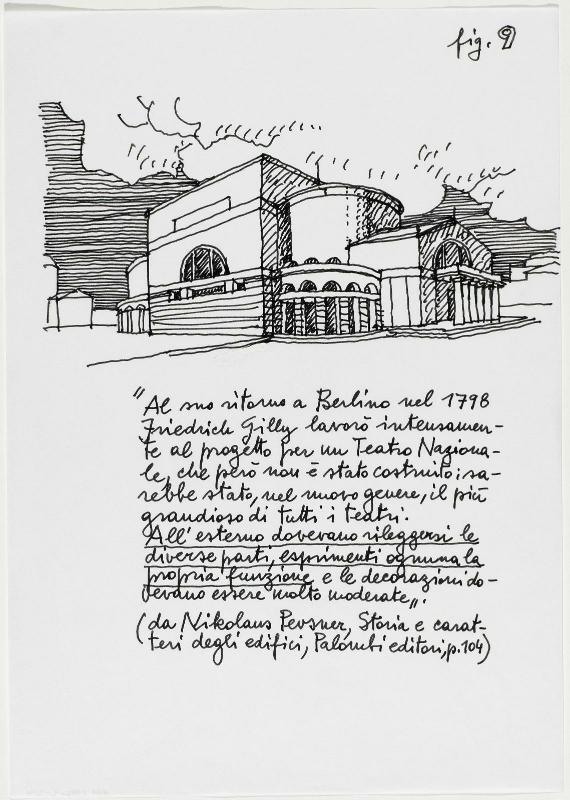 fig. 9
"Al suo ritorno a Berlino nel 1798
Friedrich Gilly lavorò intensamen-
te al progetto per un Teatro Naziona-
le, che però non è stato costruito; sa-
rebbe stato, nel nuovo genere, il più
grandioso di tutti i teatri.
All'esterno dovevano rileggersi le
diverse parti, esprimenti ognuna la
propria funzione e le decorazioni do-
vevano essere molto moderate".
(da Nikolaus Pevsner, Storia e carat-
teri degli edifici, Palombi editori, p.104)